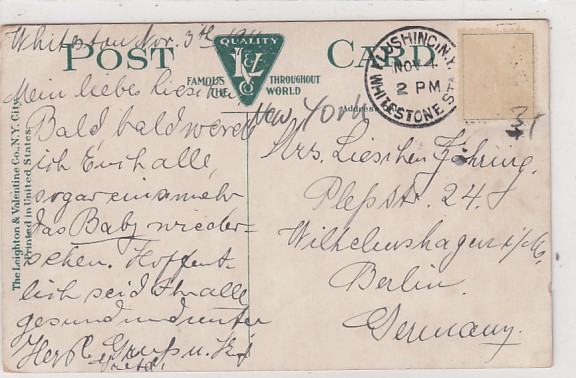 Whiteston Nov. 3th 191
POST CARD
QUALITY
L&V Co
FAMOUS THROUGHOUT
THE WORLD
FLUSHING, N.Y.
NOV 4
2 PM
WHITESTONE STA.
The Leighton & Valentine Co., N.Y. City.
Printed in United States.
Mein liebes Lieschen
Bald bald werde
ich Euch alle,
sogar eins mehr
das Baby wieder-
sehen. Hoffent-
lich seid Ihr alle
gesund und unter
Herzl. Gruss u. Kuss
New York
Address
Mrs. Lieschen Jühring.
Plessstr. 24.
Wilhelmshagen i/M.
Berlin.
Germany.